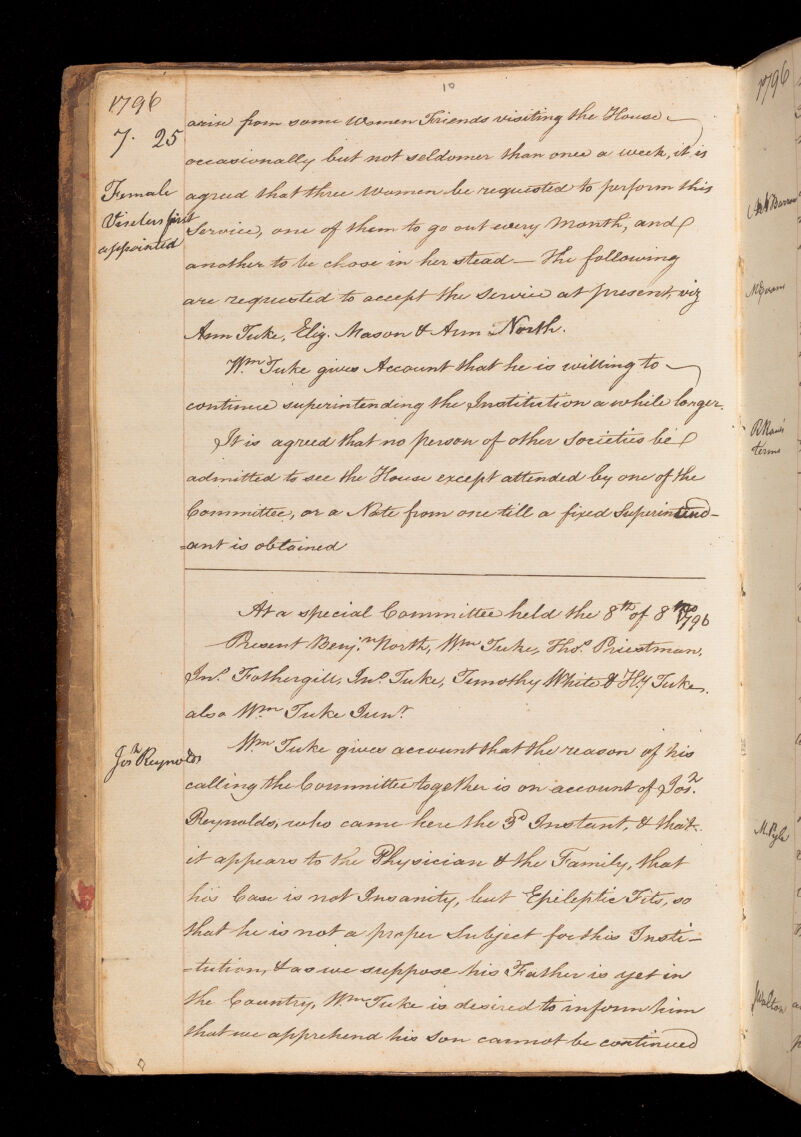 10
1796
7. 25
Female
Visiters first
appointed
arise from some Women Friends visiting the House
occasionally but not seldomer than once a week, it is
agreed that three Women be requested to perform this
Service, one of them to go out every Month, and
another to be chose in her stead — The following
are requested to accept the Service at present, viz
Ann Tuke, Eliz. Mason & Ann North.
Wm Tuke gives Account that he is willing to
continue superintending the Institution a while longer.
It is agreed that no person of other Societies be
admitted to see the House except attended by one of the
Committee, or a Note from one till a fixed Superintend-
=ant is obtained
At a special Committee held the 8th of 8 mo 1796
Present Benjn. North, Wm Tuke, Thos. Priestman,
Jno. Fothergill, Jno. Tuke, Timothy White & Hy Tuke.
also Wm Tuke Junr.
Josh Reynolds
Wm Tuke gives account that the reason of his
calling the Committee together is on account of Josh.
Reynolds, who came here the 3d Instant, & that
it appears to the Physician & the Family, that
his Case is not Insanity, but Epileptic Fits, so
that he is not a proper Subject for this Insti-
-tution, & as we suppose his Father is yet in
the Country, Wm Tuke is desired to inform him
that we apprehend his Son cannot be continued
1796
terms
M. Pyle
J Walton